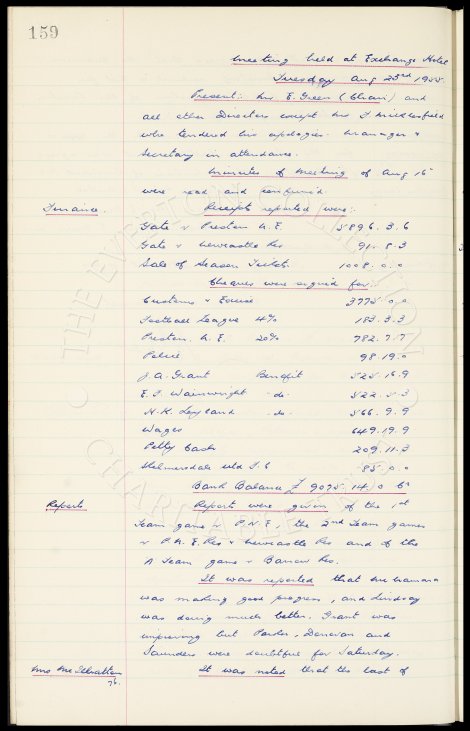 159
Meeting held at Exchange Hotel
Tuesday Aug 23rd 1955.
Present:- Mr. E. Green (Chair) and
all other Directors except Mr
who tendered his apologies. Manager &
Secretary in attendance.
Minutes of Meeting of Aug 16th
were read and confirmed.
Finance. Receipts reported were:-
Gate v Preston N.E. 5896.3.6
Gate v Newcastle Res 91.8.3
Sale of Season Tickets. 1008.0.0
Cheques were signed for:-
Customs & Excise 3775.0.0
Football League 4% 183.3.3
Preston. N.E. 20% 782.7.7
Police 98.19.0
J.A. Grant Benefit 525.16.9
E.F. Wainwright -do- 522.5.3
H.K. Leyland -do- 566.9.9
Wages 649.19.9
Petty Cash 209.11.3
Skelmersdale Utd F.C 85.0.0
Bank Balance £ 9095.14.0
Reports Report were given of the 1st
Team game v P.N.E., the 2nd Team games
v P.N.E. Res & Newcastle Res and of the
A Team game v Barrow Res.
It was reported that
was making good progress, and Lindsay
was doing much better. Grant was
improving but Parker, Donovan and
Saunders were doubtful for Saturday.
Mrs It was noted that the cost of
THE EVERTON COLLECTION
CHARITABLE TRUST